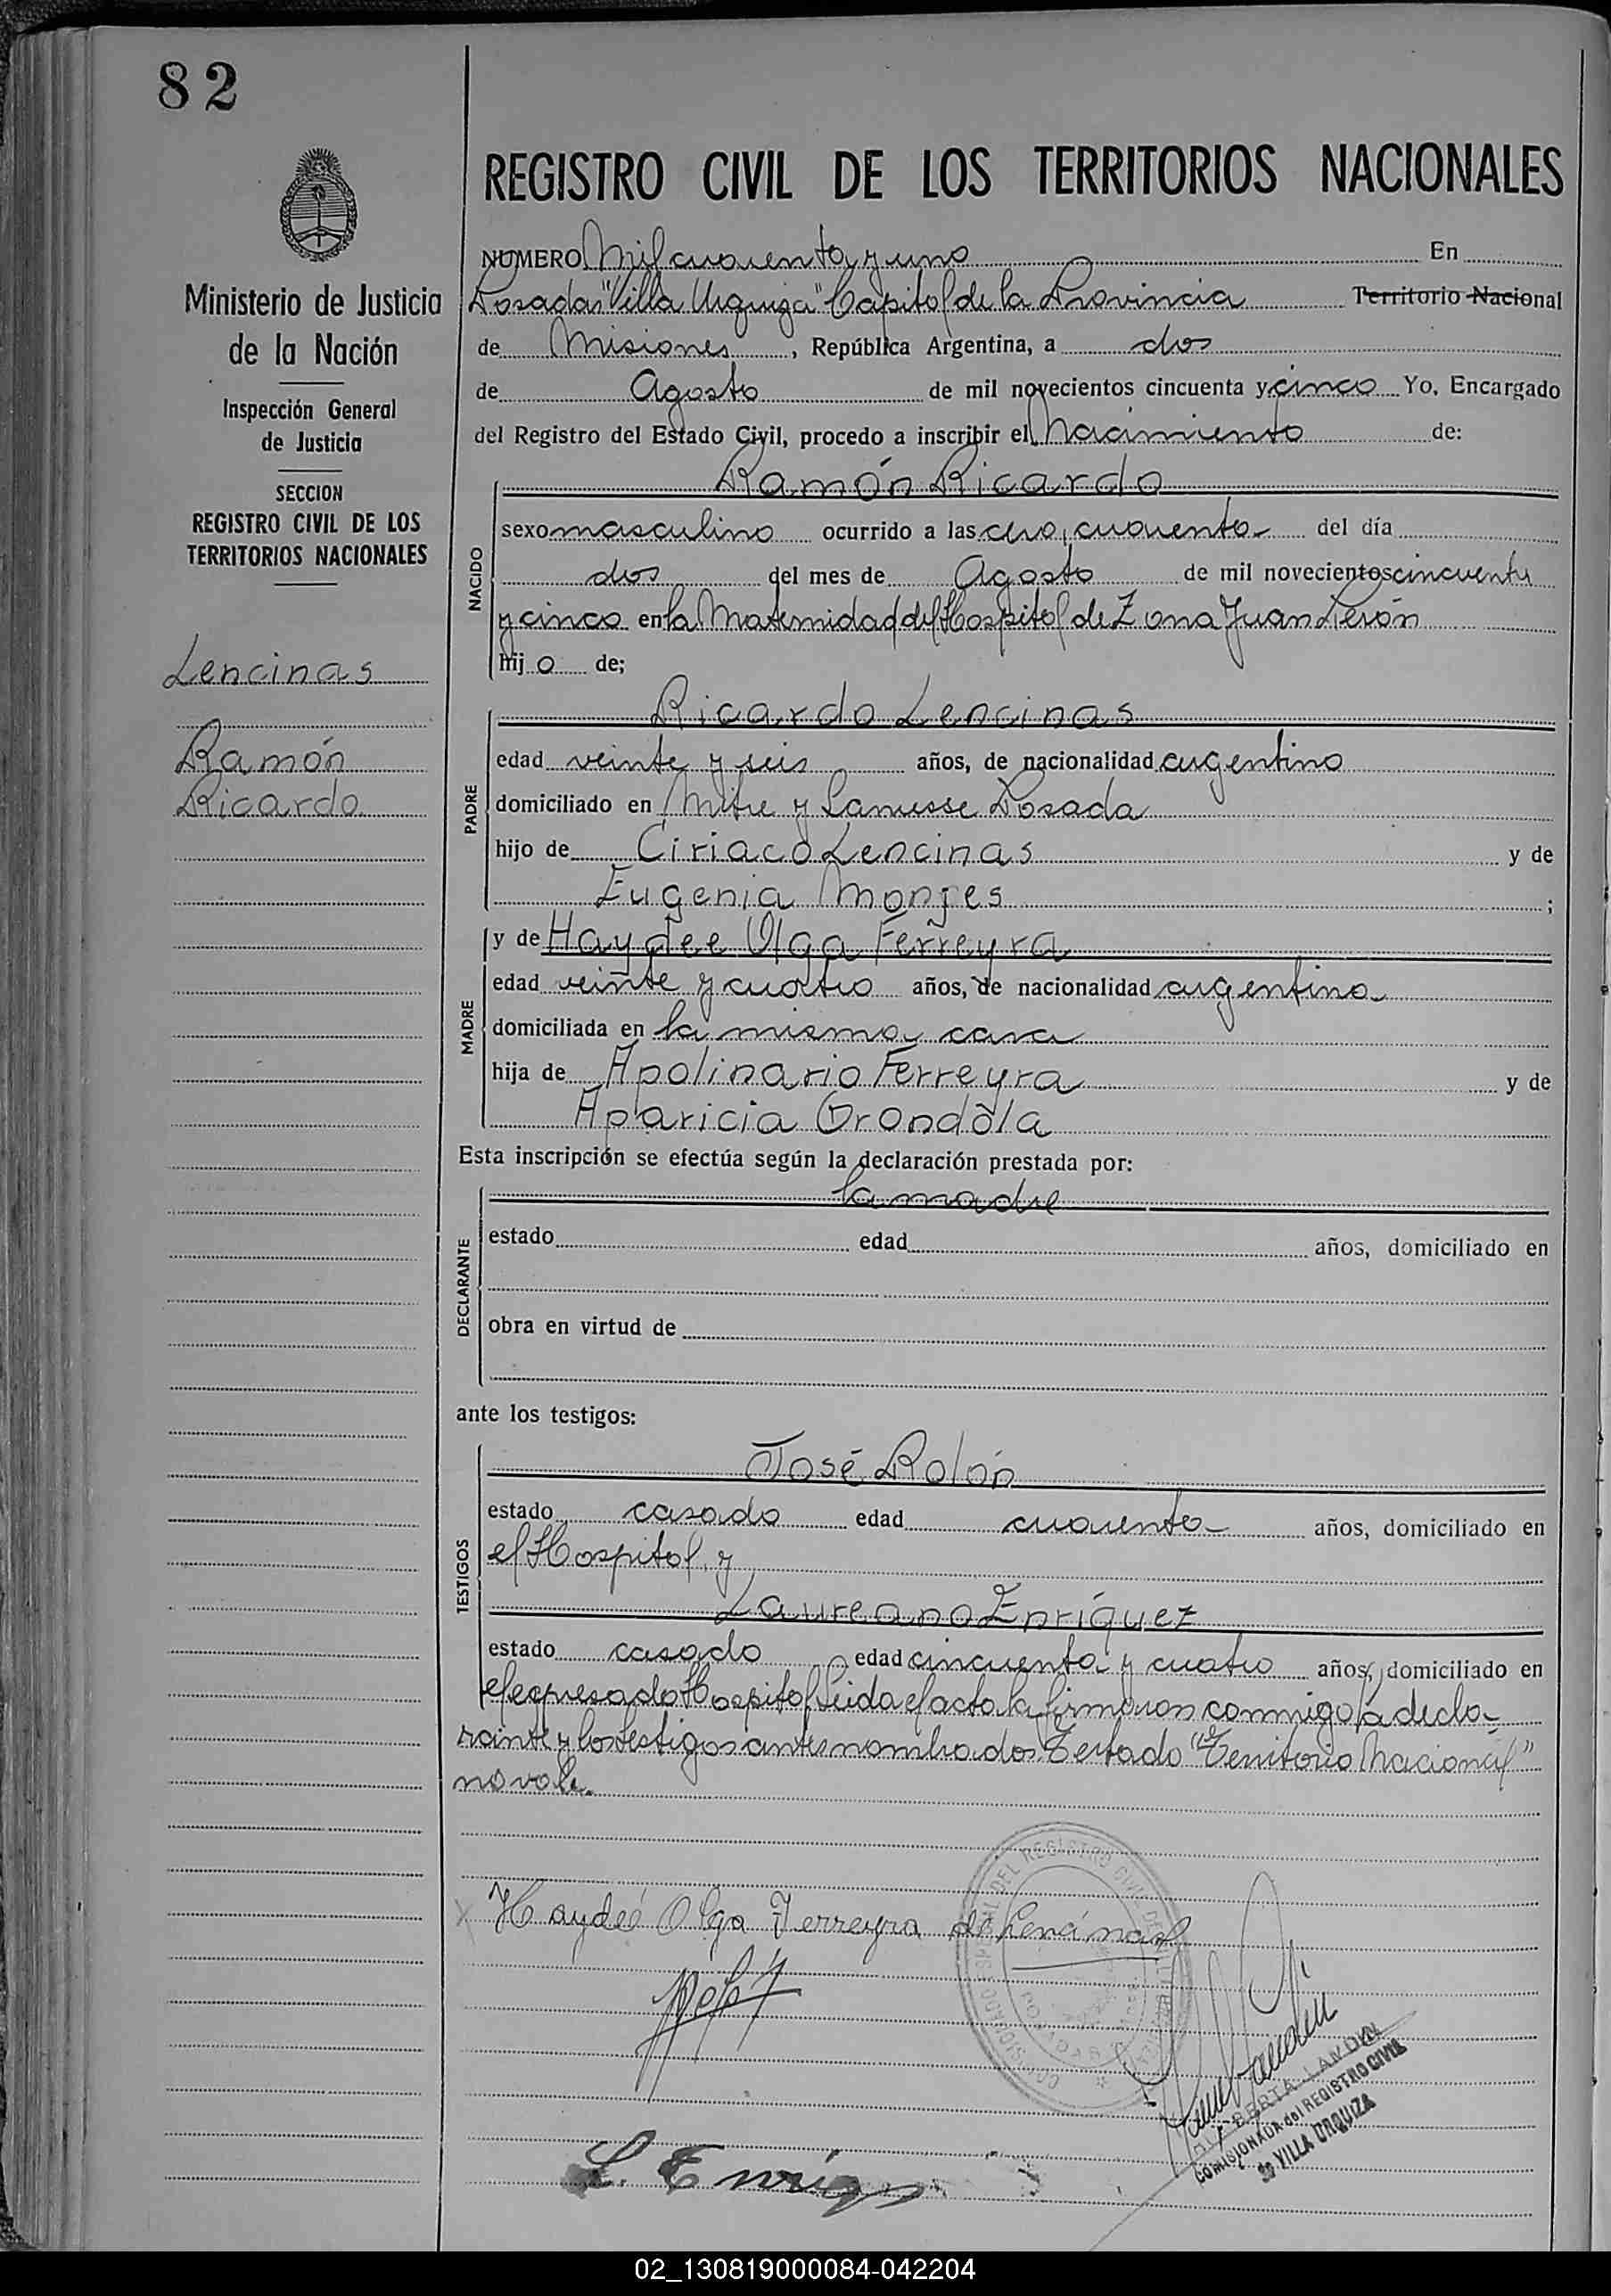 82
REGISTRO CIVIL DE LOS TERRITORIOS NACIONALES
Ministerio de Justicia
de la Nación
Inspección General
de Justicia
SECCION
REGISTRO CIVIL DE LOS
TERRITORIOS NACIONALES
Lencinas
Ramón
Ricardo
NUMERO Mil cuarenta y uno En
Posadas "Villa Urquiza" Capital de la Provincia Territorio Nacional
de Misiones, República Argentina, a dos
de Agosto de mil novecientos cincuenta y cinco Yo, Encargado
del Registro del Estado Civil, procedo a inscribir el Nacimiento de:
NACIDO
Ramón Ricardo
sexo masculino ocurrido a las cero, cuarenta del día
dos del mes de Agosto de mil novecientos cincuenta
y cinco en la Maternidad del Hospital de Zona Juan Perón
hij o de;
PADRE
Ricardo Lencinas
edad veinte y seis años, de nacionalidad argentino
domiciliado en Mitre y Lanusse Posada
hijo de Ciriaco Lencinas y de
Eugenia Monjes ;
MADRE
y de Haydee Olga Ferreyra
edad veinte y cuatro años, de nacionalidad argentina
domiciliada en la misma casa
hija de Apolinario Ferreyra y de
Aparicia Grondola
Esta inscripción se efectúa según la declaración prestada por:
DECLARANTE
la madre
estado edad años, domiciliado en
obra en virtud de
ante los testigos:
TESTIGOS
José Rolón
estado casado edad cuarenta años, domiciliado en
el Hospital y
Laureano Enríquez
estado casado edad cincuenta y cuatro años, domiciliado en
el expresado Hospital leida el acta la firmaron conmigo la decla-
rante y los testigos antes nombrados Testado "Territorio Nacional"
no vale.
Haydeé Olga Ferreyra de Lencinas
L. Enriq
BERTA LANDIN
COMISIONADA del REGISTRO CIVIL
de VILLA URQUIZA
02_130819000084-042204